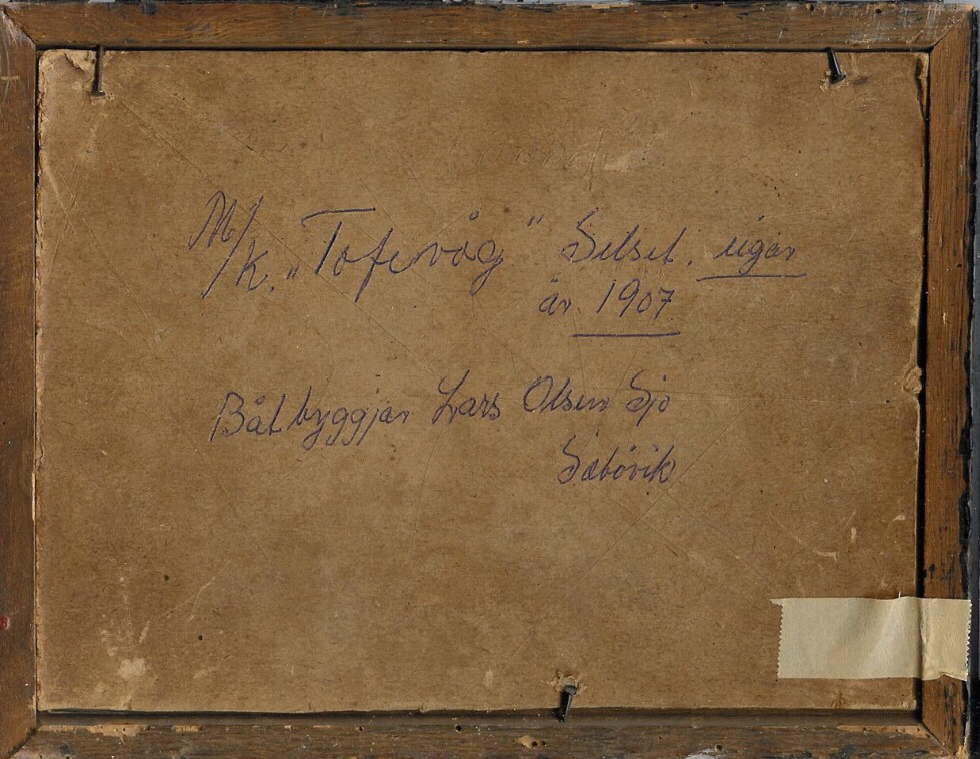 M/K. „Tofevåg" Silset. eigar
år. 1907
Båtbyggjar Lars Olsen Sjo
Sæbövik